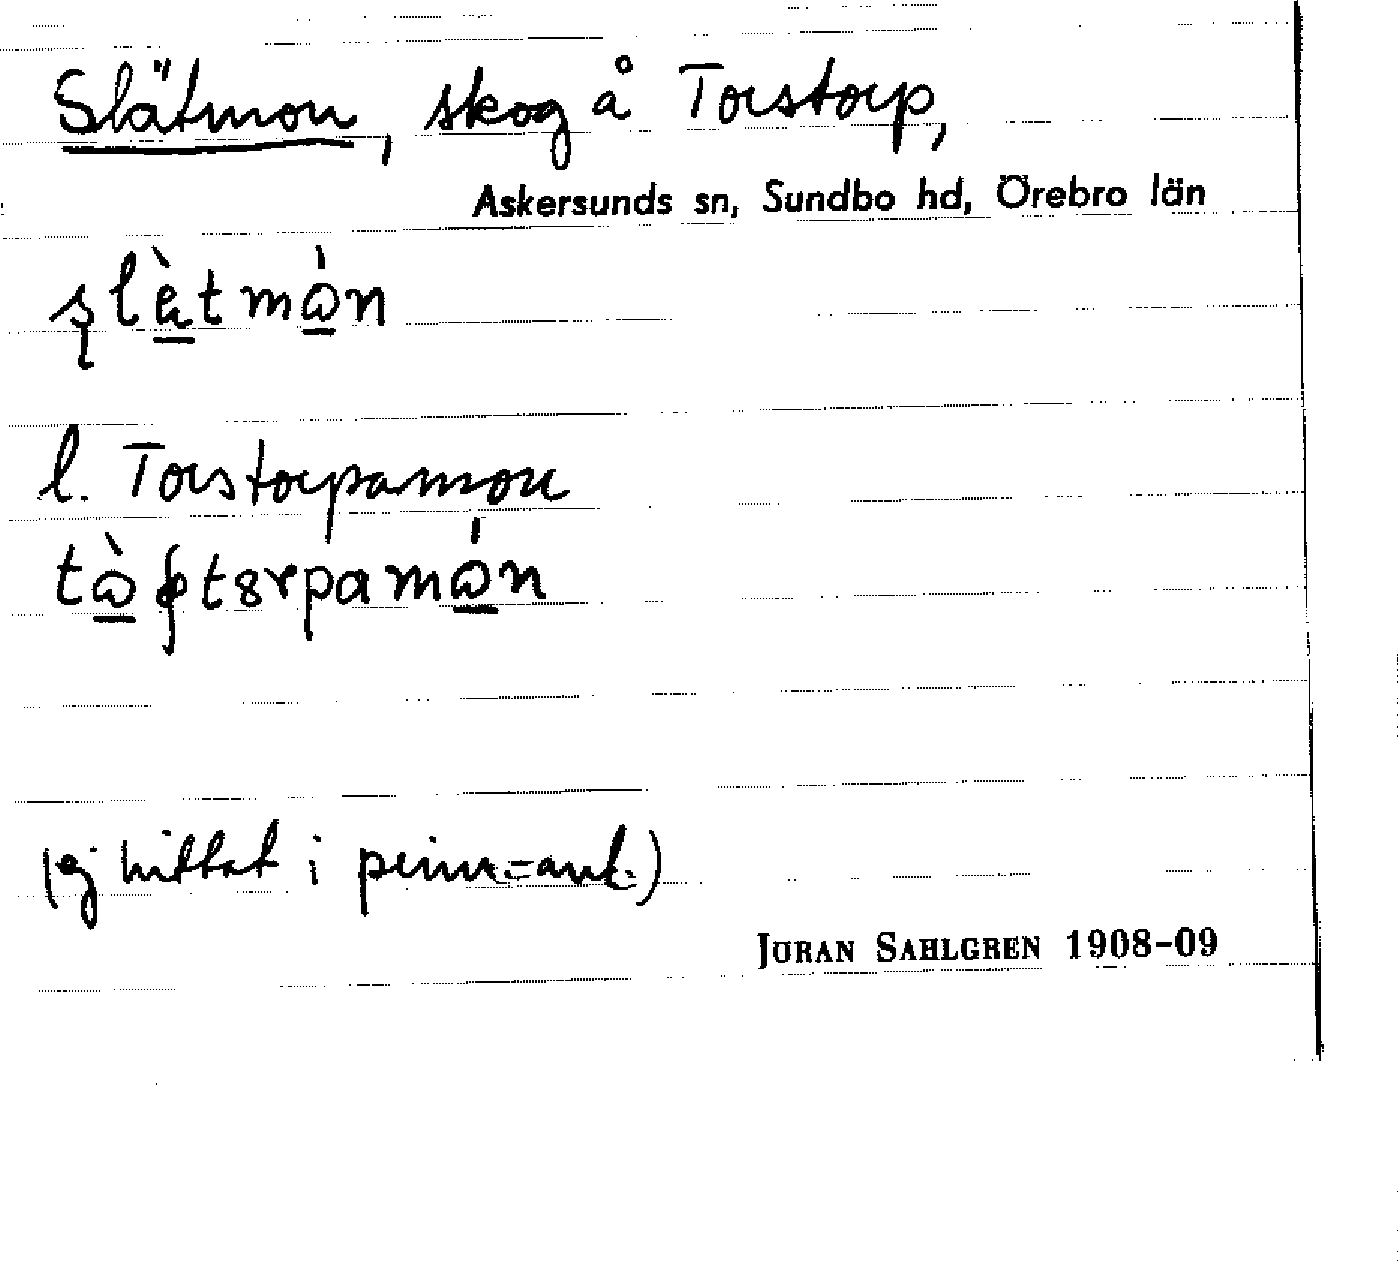 Slätmon, skog å Torstorp,
Askersunds sn, Sundbo hd, Örebro län
l. Torstorpamon
(ej hittat i prim=ant.)
JÖRAN SAHLGREN 1908-09